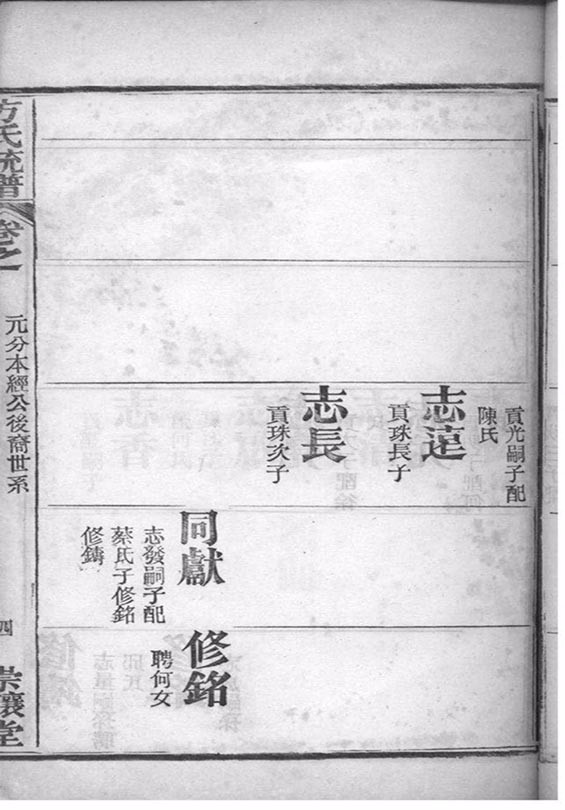 貢光嗣子配
陳氏
志遠
貢珠長子
志長
貢珠次子
同獻
志發嗣子配
蔡氏子修銘
修鑄
修銘
聘何女
方氏統譜
卷之一
元分本經公後裔世系
四
崇讓堂